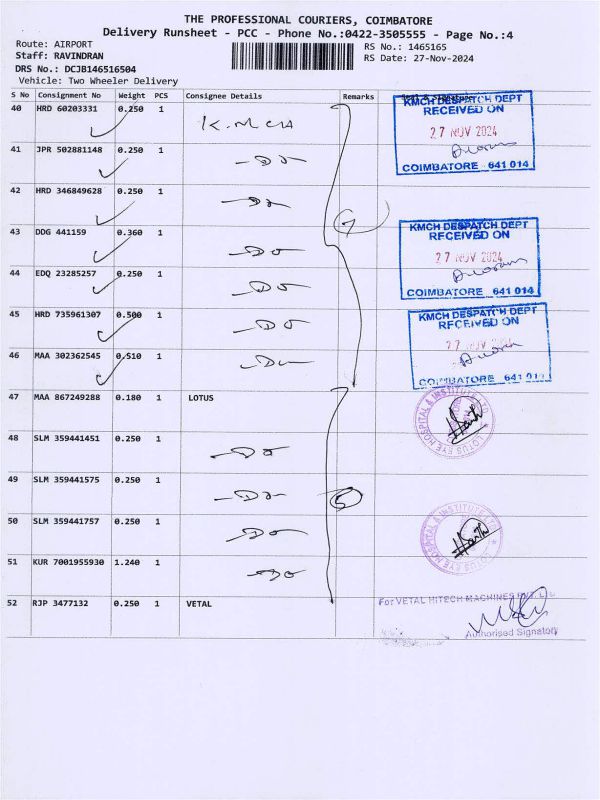 THE PROFESSIONAL COURIERS, COIMBATORE
Delivery Runsheet - PCC - Phone No.:0422-3505555 - Page No.:4
Route: AIRPORT
RS No.: 1465165
Staff: RAVINDRAN
RS Date: 27-Nov-2024
DRS No.: DCJB146516504
Vehicle: Two Wheeler Delivery
S No Consignment No Weight PCS Consignee Details Remarks
40 HRD 60203331 0.250 1 K.MCH
41 JPR 502881148 0.250 1 Do
42 HRD 346849628 0.250 1 Do
43 DDG 441159 0.360 1 Do
44 EDQ 23285257 0.250 1 Do
45 HRD 735961307 0.500 1 Do
46 MAA 302362545 0.510 1 Do
7
KMCH DESPATCH DEPT
RECEIVED ON
27 NOV 2024
COIMBATORE 641 014
KMCH DESPATCH DEPT
RECEIVED ON
27 NOV 2024
COIMBATORE 641 014
KMCH DESPATCH DEPT
RECEIVED ON
27 NOV 2024
COIMBATORE 641 014
47 MAA 867249288 0.180 1 LOTUS
48 SLM 359441451 0.250 1 Do
49 SLM 359441575 0.250 1 Do
50 SLM 359441757 0.250 1 Do
51 KUR 7001955930 1.240 1 Do
5
LOTUS EYE HOSPITAL & INSTITUTE LTD
LOTUS EYE HOSPITAL & INSTITUTE LTD
52 RJP 3477132 0.250 1 VETAL
For VETAL HITECH MACHINES PVT. L
Authorised Signatory